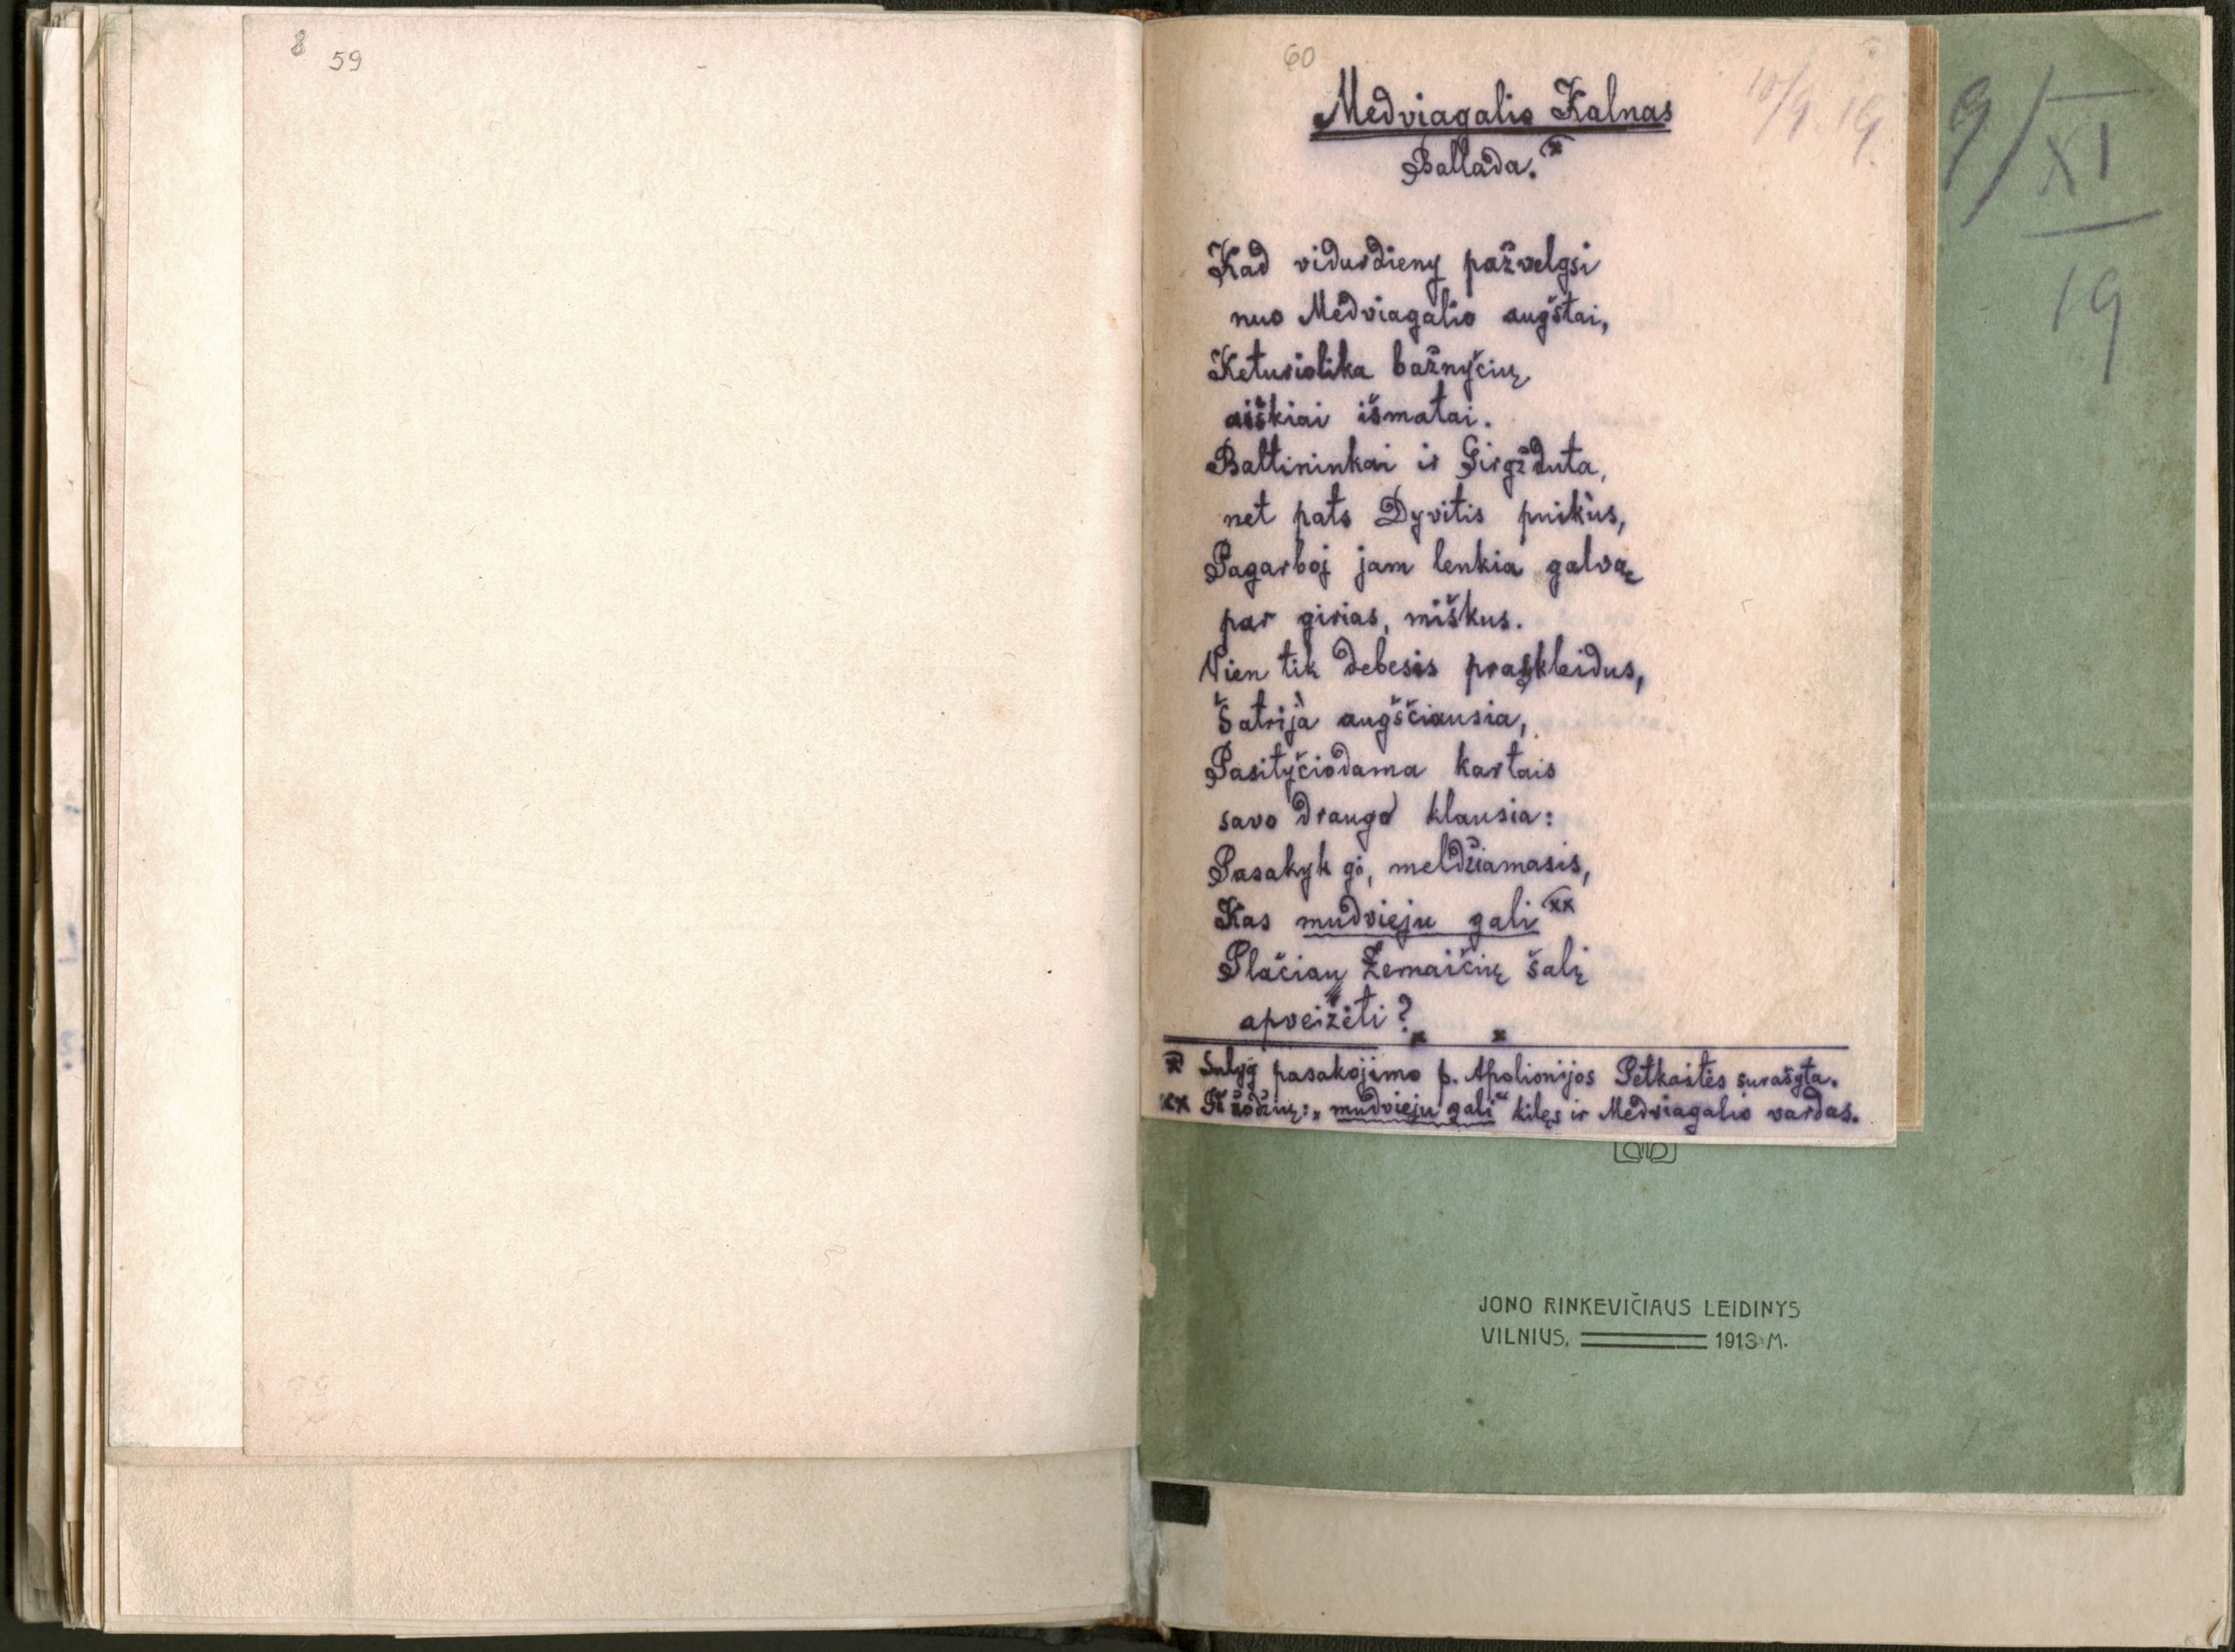 8 59
60
10/9.19.
9/XI
19
Medviagalio Kalnas
Ballada. x)
Kad vidurdieny pažvelgsi
nuo Medviagalio augštai,
Keturiolika bažnyčių
aiškiai išmatai.
Baltininkai ir Girgžduta,
net pats Dyvitis puikus,
Pagarboj jam lenkia galvą
par girias, miškus.
Vien tik debesis praskleidus,
Šatrija augščiausia,
Pasityčiodama kartais
savo draugo klausia:
Pasakyk gi, meldžiamasis,
Kas mudvieju gali xx)
Plačiau Žemaičių šalį
apveizėti?
x x
x) Sulyg pasakojimo p. Apolionijos Petkaitės surašyta.
xx Iš žodžių: „mudvieju gali“ kilęs ir Medviagalio vardas.
JONO RINKEVIČIAUS LEIDINYS
VILNIUS, 1913 M.